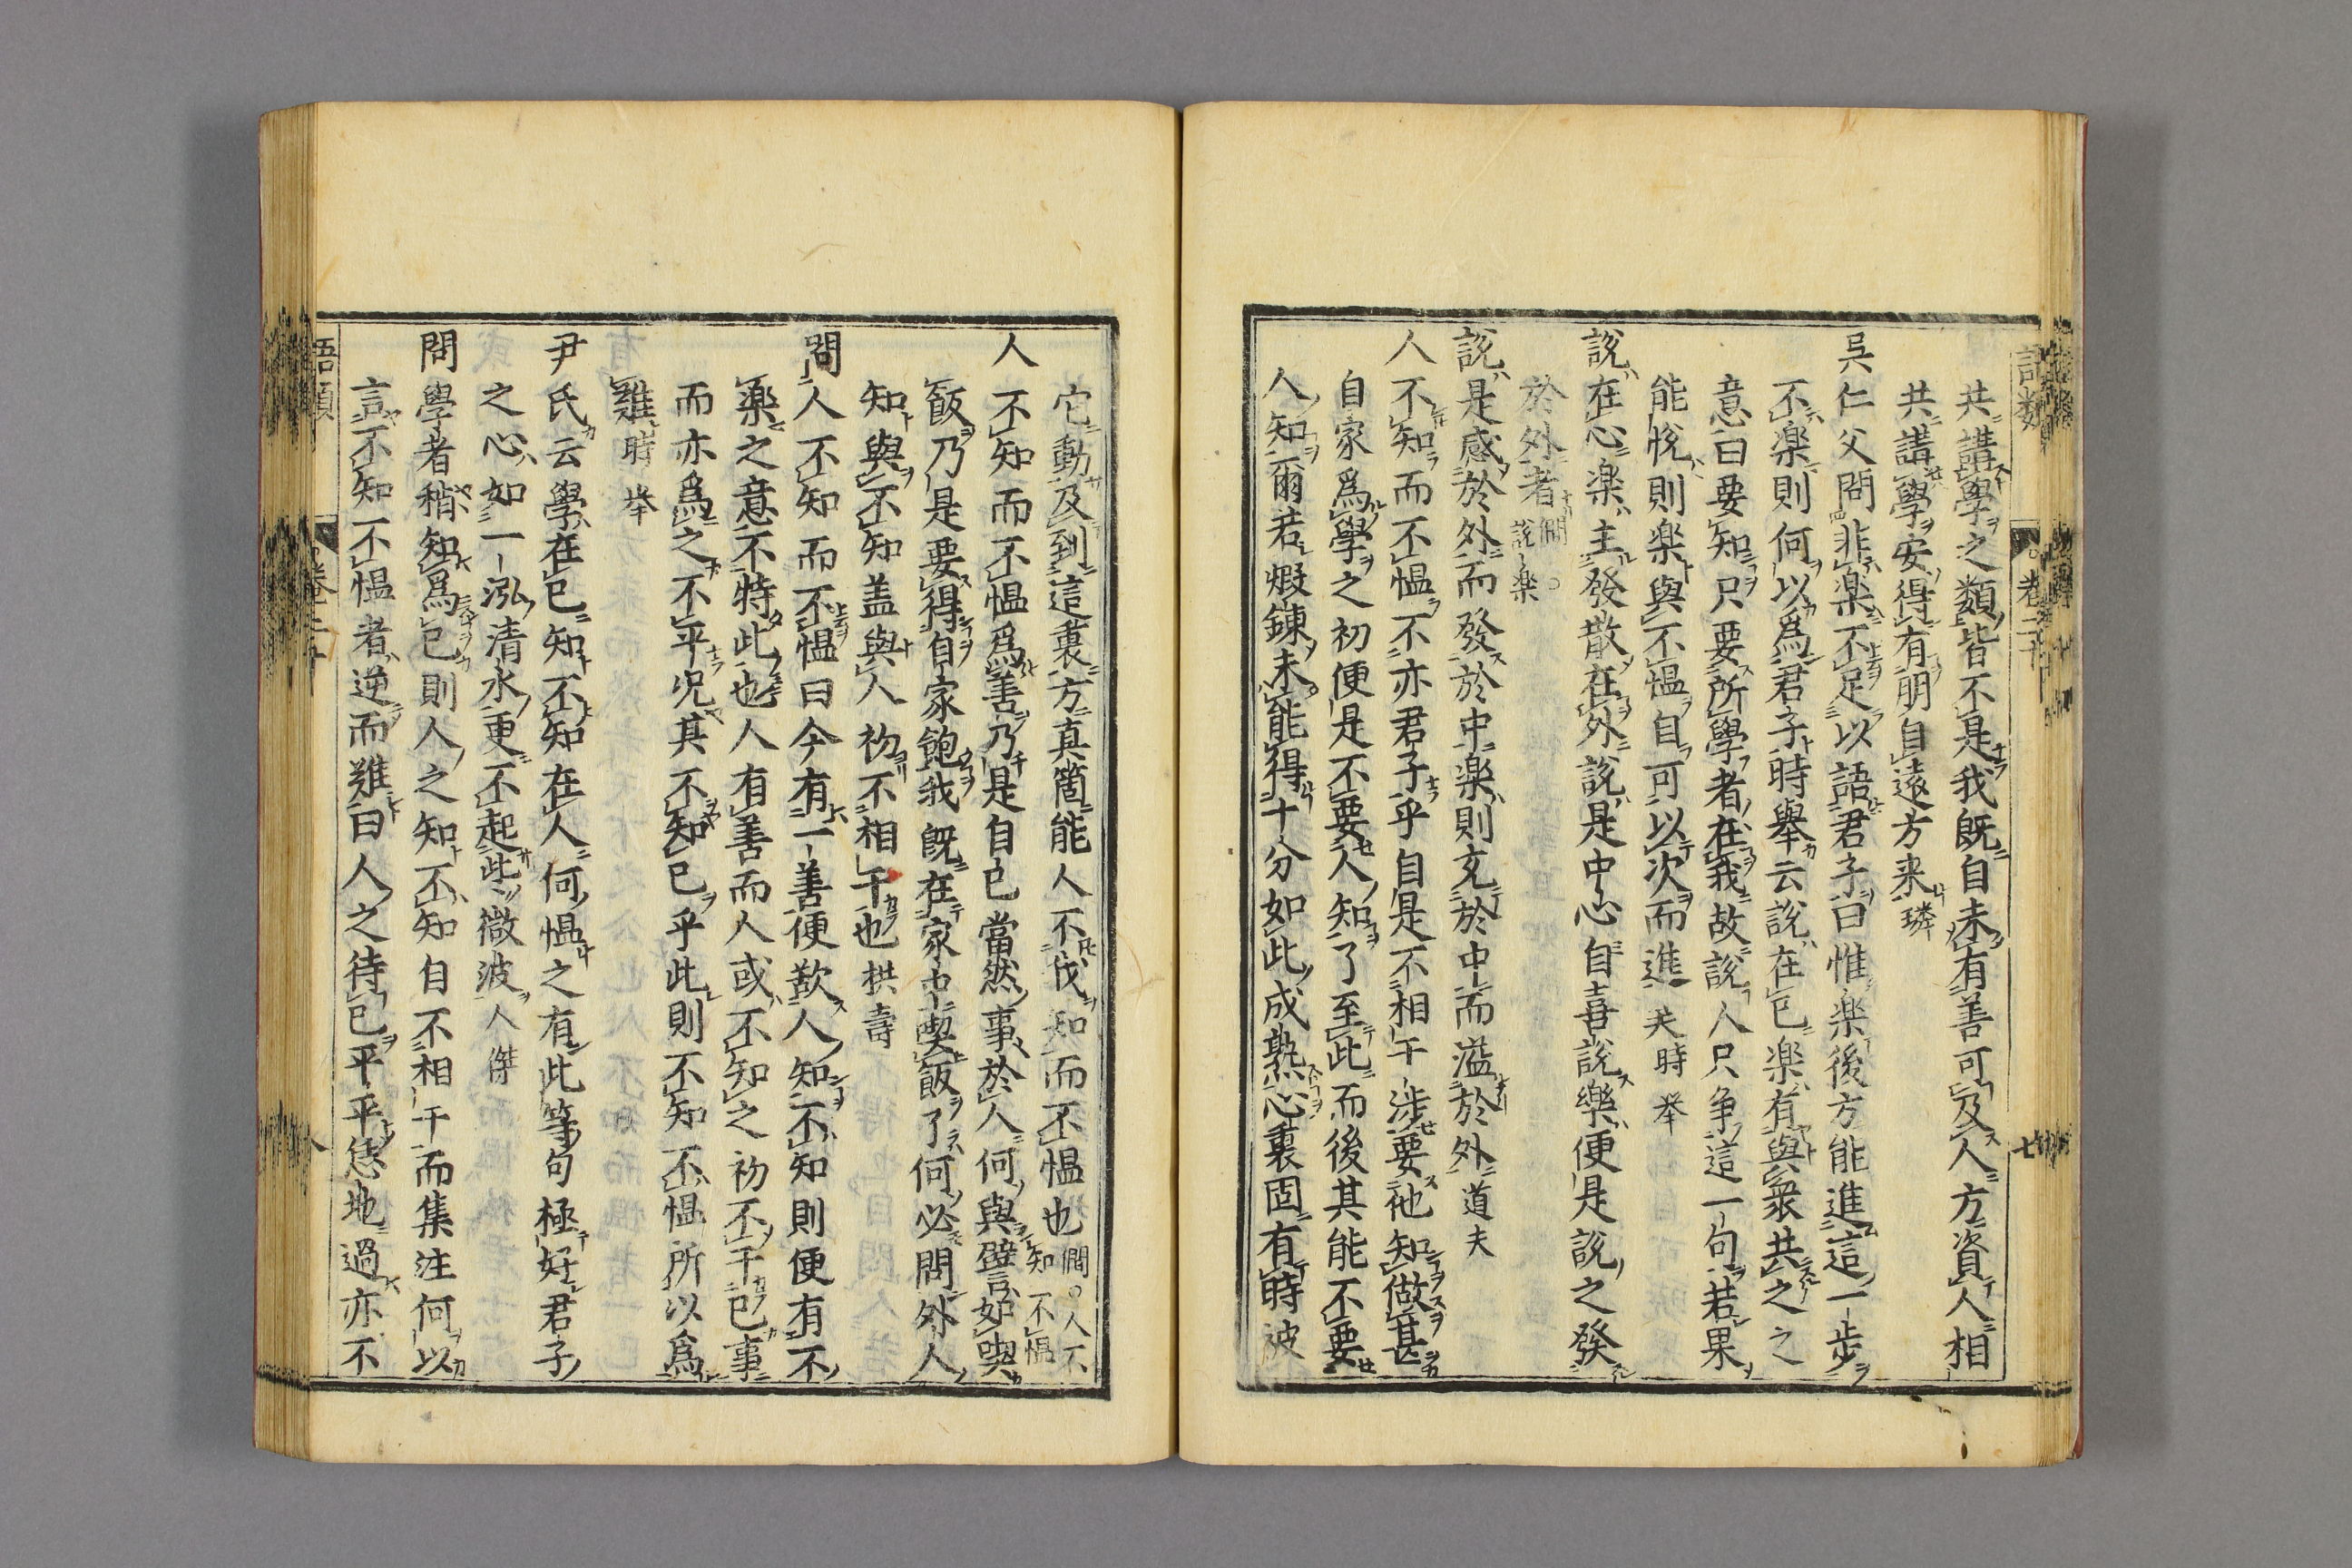 語類 卷二十 七
共講學之類皆不是我既自未有善可及人方資人相
共講學安得有朋自遠方来璘
吴仁父問非楽不足以語君子曰惟楽後方能進這一歩
不楽則何以爲君子時舉云說在已楽有與衆共之之
意曰要知只要所學者在我故說人只争這一句若果
能悅則楽與不愠自可以次而進矣時挙
說在心楽主發散在外說是中心自喜說樂便是說之發
於外者僩○說楽
說是感於外而發於中楽則充於中而溢於外道夫
人不知而不愠不亦君子乎自是不相干渉要他知做甚
自家爲學之初便是不要人知了至此而後其能不要
人知爾若煆錬未能得十分如此成熟心裏固有時被
它動及到這裏方真箇能人不伐知而不愠也僩○人不知不愠
人不知而不愠爲善乃是自已當然事於人何與譬如喫
飯乃是要得自家飽我既在家中喫飯了何必問外人
知與不知盖與人初不相干也拱壽
問人不知而不愠曰今有一善便歎人知不知則便有不
楽之意不特此也人有善而人或不知之初不干已事
而亦爲之不平况其不知已乎此則不知不愠所以爲
難時挙
尹氏云學在已知不知在人何愠之有此等句極好君子
之心如一泓清水更不起此微波人傑
問學者稍知爲已則人之知不知自不相干而集注何以
言不知不愠者逆而難曰人之待已平平恁地過亦不
語類 卷二十 八